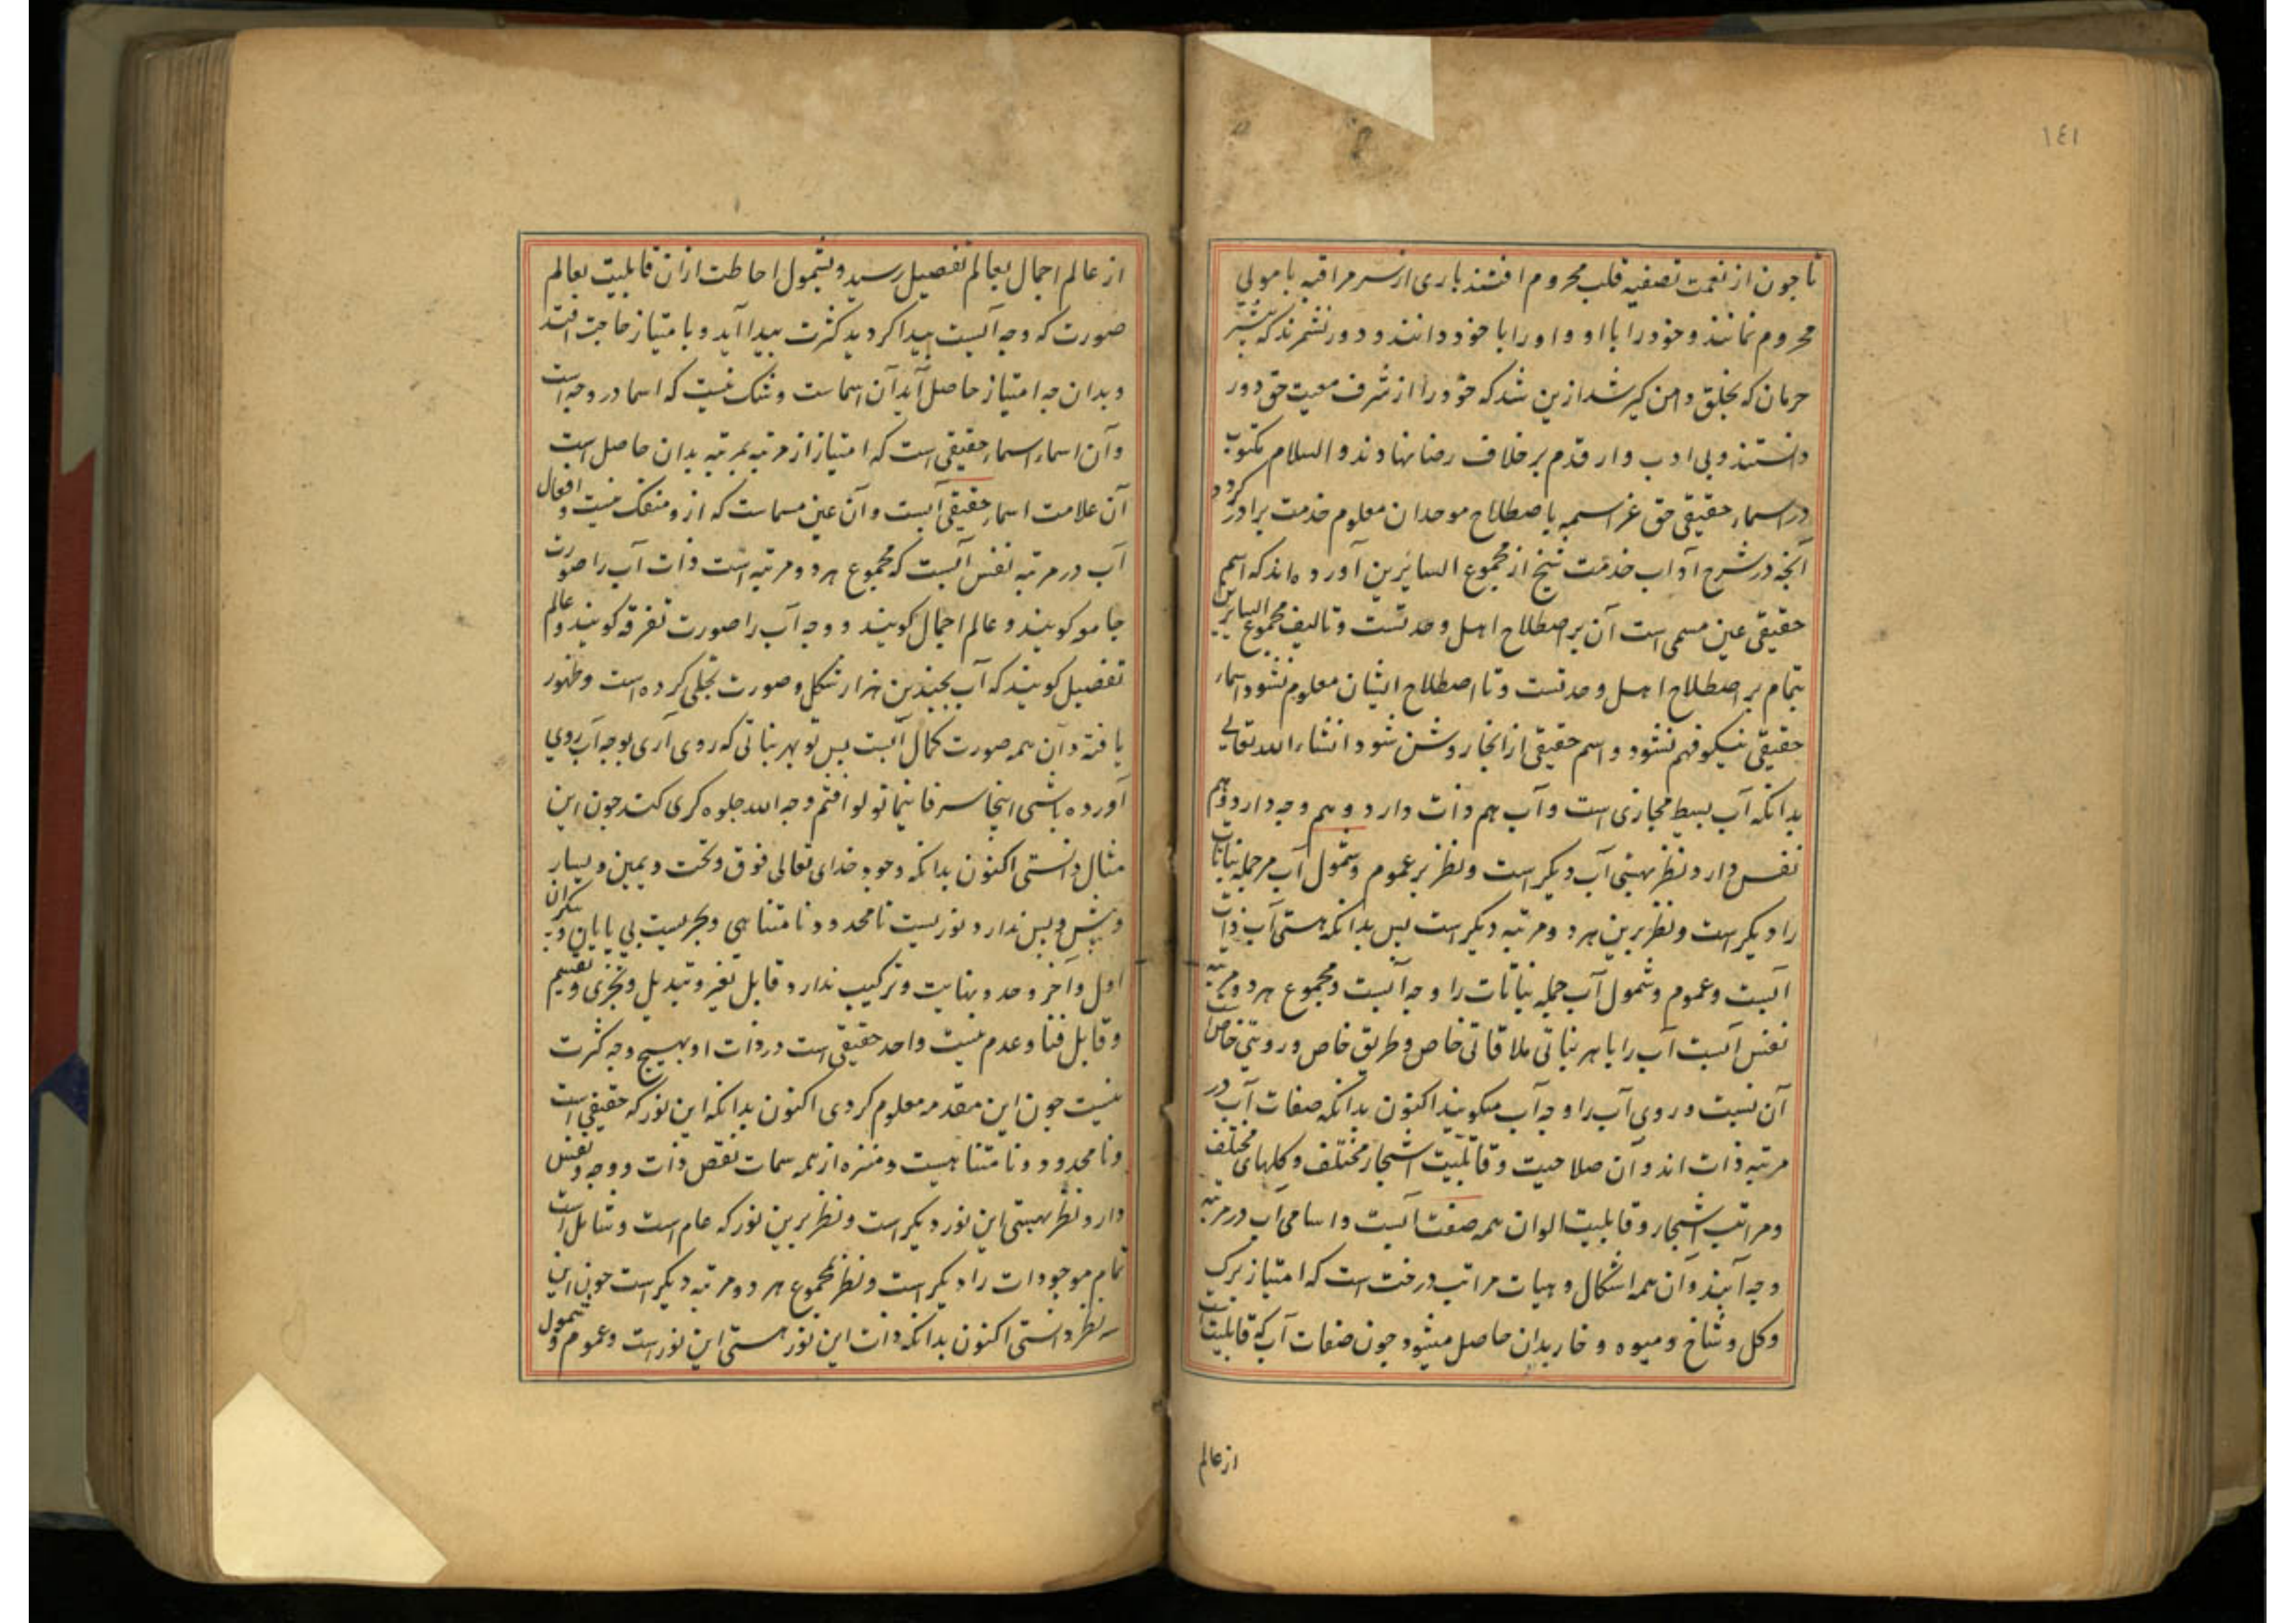 ١٤١
تا چون از نعمت تصفیه قلب محروم افتند باری از سر مراقبه با مولی
محروم نمانند و خود را با او و او را با خود دانند و دور نشمرند که بیشتر
حرمان که بخلق دامن کیر شد ازین شد که خود را از شرف معیت حق دور
دانستند و بی ادب وار قدم بر خلاف رضا نهادند و السلام مکتوب
در اسماء حقیقی حق عز اسمه باصطلاح موحدان معلوم خدمت برادر کردد
آنچه در شرح آداب خدمت شیخ از مجموع السایرین آورده اند که اسم
حقیقی عین مسمی است آن بر اصطلاح اهل وحدتست و تالیف مجموع السایرین
بتمام بر اصطلاح اهل وحدتست و تا اصطلاح ایشان معلوم نشود اسماء
حقیقی نیکو فهم نشود و اسم حقیقی از انجا روشن شود انشاء الله تعالی
بدانکه آب بسیط مجازی است و آب هم ذات دارد و هم وجه دارد و هم
نفس دارد و نظر بهستی آب دیکر است و نظر بر عموم و شمول آب مر جمله نباتات
را دیکر است و نظر برین هر دو مرتبه دیکر است پس بدانکه هستی آب ذات
آبست و عموم و شمول آب جمله نباتات را وجه آبست و مجموع هر دو مرتبه
نفس آبست آب را با هر نباتی ملاقاتی خاص و طریق خاص و رویتی خاص است
آن نسبت و روی آب را وجه آب میکویند اکنون بدانکه صفات آب در
مرتبه ذات اند و آن صلاحیت و قابلیت اشجار مختلف و کلهای مختلف
و مراتب اشجار و قابلیت الوان همه صفت آبست و اسامی آب در مرتبه
وجه آبند و آن همه اشکال و هیات مراتب درخت است که امتیاز برک
و کل و شاخ و میوه و خار بدان حاصل میشود چون صفات آب که قابلیت است
از عالم
از عالم اجمال بعالم تفصیل رسید و بشمول احاطت از ان قابلیت بعالم
صورت که وجه آبست پیدا کردید کثرت پیدا آید و بامتیاز حاجت افتد
و بدان چه امتیاز حاصل آید آن اسماست و شک نیست که اسما در وجه است
و آن اسماء اسماء حقیقی است که امتیاز از مرتبه بمرتبه بدان حاصل است
آن علامت اسماء حقیقی آبست و آن عین مسماست که ازو منفک نیست و افعال
آب در مرتبه نفس آبست که مجموع هر دو مرتبه است ذات آب را صورت
جامعه کویند و عالم اجمال کویند و وجه آب را صورت تفرقه کویند و عالم
تفصیل کویند که آب بچندین هزار شکل و صورت تجلی کرده است و ظهور
یافته و آن همه صورت کمال آبست پس تو بهر نباتی که روی آری بوجه آب روی
آورده باشی اینجا سر فاینما تولوا فثم وجه الله جلوه کری کند چون این
مثال دانستی اکنون بدانکه وجود خدای تعالی فوق و تحت و یمین و یسار
و پیش و پس ندارد نوریست نامحدود و نامتناهی و بحریست بی پایان و بیکران
اول و آخر و حد و نهایت و ترکیب ندارد قابل تغیر و تبدیل و تجزی و تقسیم
و قابل فنا و عدم نیست واحد حقیقی است در ذات او بهیچ وجه کثرت
نیست چون این مقدمه معلوم کردی اکنون بدانکه این نور که حقیقی است
و نامحدود و نامتناهیست و منزه از همه سمات نقص ذات و وجه و نفس
دارد نظر بهستی این نور دیکر است و نظر برین نور که عام است و شامل است
تمام موجودات را دیکر است و نظر مجموع هر دو مرتبه دیکر است چون این
سه نظر دانستی اکنون بدانکه ذات این نور هستی این نور است و عموم و شمول